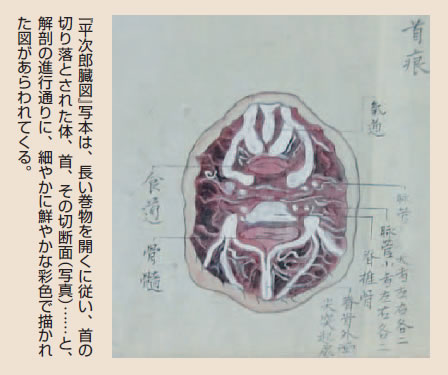 『平次郎臓図』写本は、長い巻物を開くに従い、首の
切り落とされた体、首、その切断面(写真)……と、
解剖の進行通りに、細やかに鮮やかな彩色で描かれ
た図があらわれてくる。
首痕
氣道
食道
骨髄
脉管 大者左右各二
脉管小者左右各二
脊椎骨
脊骨外面